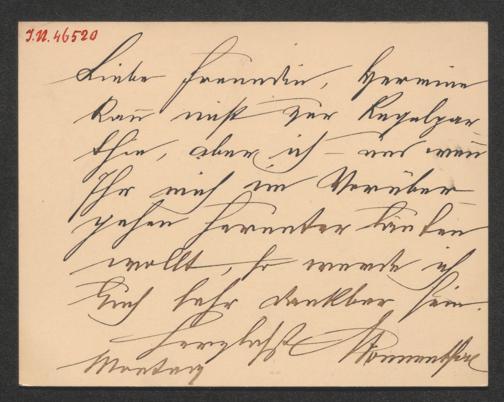 I.N. 46520
Liebe Freundin, Hermine
kan̅ nicht zur Kegelpar
thie, aber ich – und wen̅
Ihr mich im Vorüber
gehen herunter läuten
wollt, so werde ich
Euch sehr dankbar sein.
Herzlichst
Montag